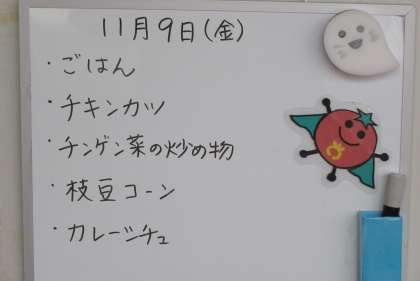 11月9日(金)
・ごはん
・チキンカツ
・チンゲン菜の炒め物
・枝豆コーン
・カレーシチュ